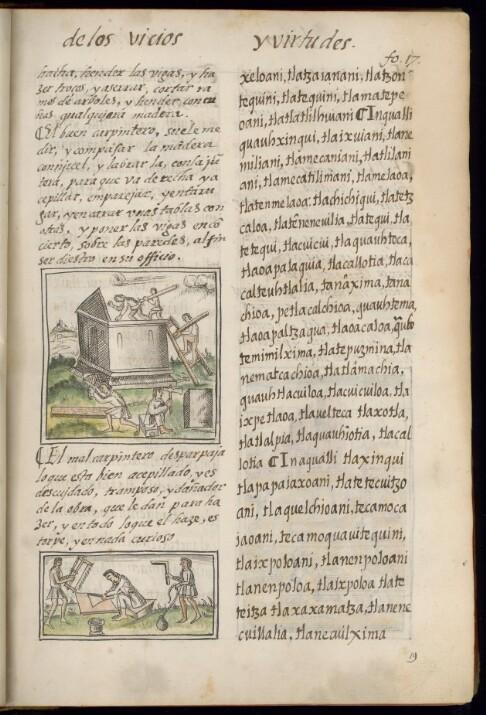 de los vicios
y virtudes.
fo. 17.
hacha, hender las vigas, y ha
zer troços, y aserrar, cortar ra
mos de arboles, y hender, con cu
ñas qualquiera madera.
¶ El buen carpintero, suele me
dir, y compasar la madera
con nivel, y labrar la, con la jũ
tera, para que va derecha ya
cepillar, emparejar, y entaru
gar, y encaxar vnas tablas con
otras, y poner las vigas en cõ
cierto, sobre las paredes, al fin
ser diestro en su officio.
¶ El mal carpintero, desparpaja
lo que esta bien acepillado, y es
descuidado, tramposo, y dañador
de la obra, que le dan para ha
zer, y en todo lo que el haze, es
torpe, y en nada curioso
xeloani, tlatzaianani, tlatzon-
tequini, tlatequini, tlamatepe
oani, tlatlatlilhuiani ¶ In qualli
quauhxinqui, tlaixuiani, tlane
miliani, tlanecaniani, tlatlilani
ani, tlamecatilmani, tlamelaoa,
tlatenmelaoa, tlachichiqui, tlatetz
caloa, tlatẽnenevilia, tlatequi, tla
tetequi, tlacuiciu, tlaquauhteca,
tlaoapalaquia, tlacallotia, tlaca
calteuhtlalia, tanaxima, tana
chioa, petlacalchioa, quauhtema,
tlaoapaltzaqua, tlaoacaloa,
temimilxima, tlatepuzmina, tla
nematcachioa, tlatlamachia,
quauhtlacuiloa, tlacuicuiloa, tla
ixpetlaoa, tlavelteca tlaxotla,
tlatlalpia, tlaquauhiotia, tlacal
lotia ¶ In aqualli tlaxinqui
tlapapaiaxoani, tlatetecuitzo
ani, tlaquelchioani, tecamoca
iaoani, tecamoquauitequini,
tlaixpoloani, tlanenpoloani
tlanenpoloa, tlaixpoloa, tlate
teitza tlaxaxamatza, tlanene
cuillalia, tlanecuilxima